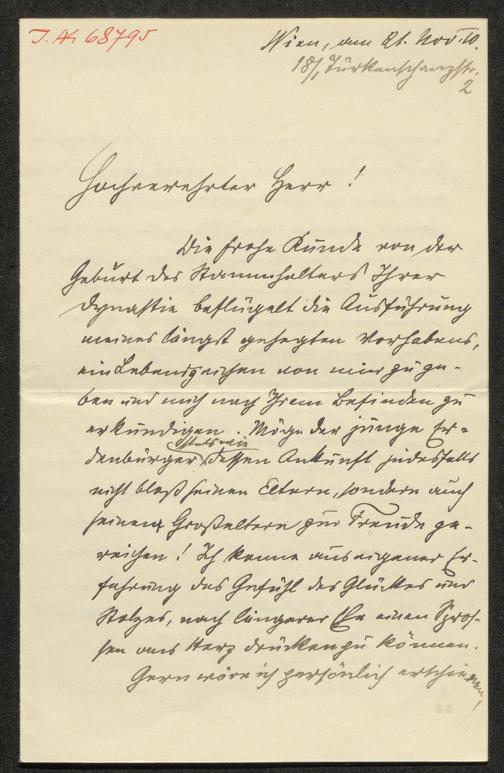 I.N. 68795
Wien, am 21. Nov. 10.
18/1, Türkenschanzstr.
2
Hochverehrter Herr!
Die frohe Kunde von der
Geburt des Stammhalters Ihrer
Dynastie beflügelt die Ausführung
meines längst gehegten Vorhabens,
ein Lebenszeichen von mir zu ge-
ben und mich nach Ihrem Befinden zu
erkundigen. Möge der junge Er-
denbürger, dessen Ankunft jedesfalls
nicht bloß seinen Eltern, sondern auch
seinen Großeltern zur Freude ge-
reichen! Ich kenne aus eigener Er-
fahrung das Gefühl des Glückes und
Stolzes, nach längerer Ehe einen Spros-
sen ans Herz drücken zu können.
Gern wäre ich persönlich erschienen,